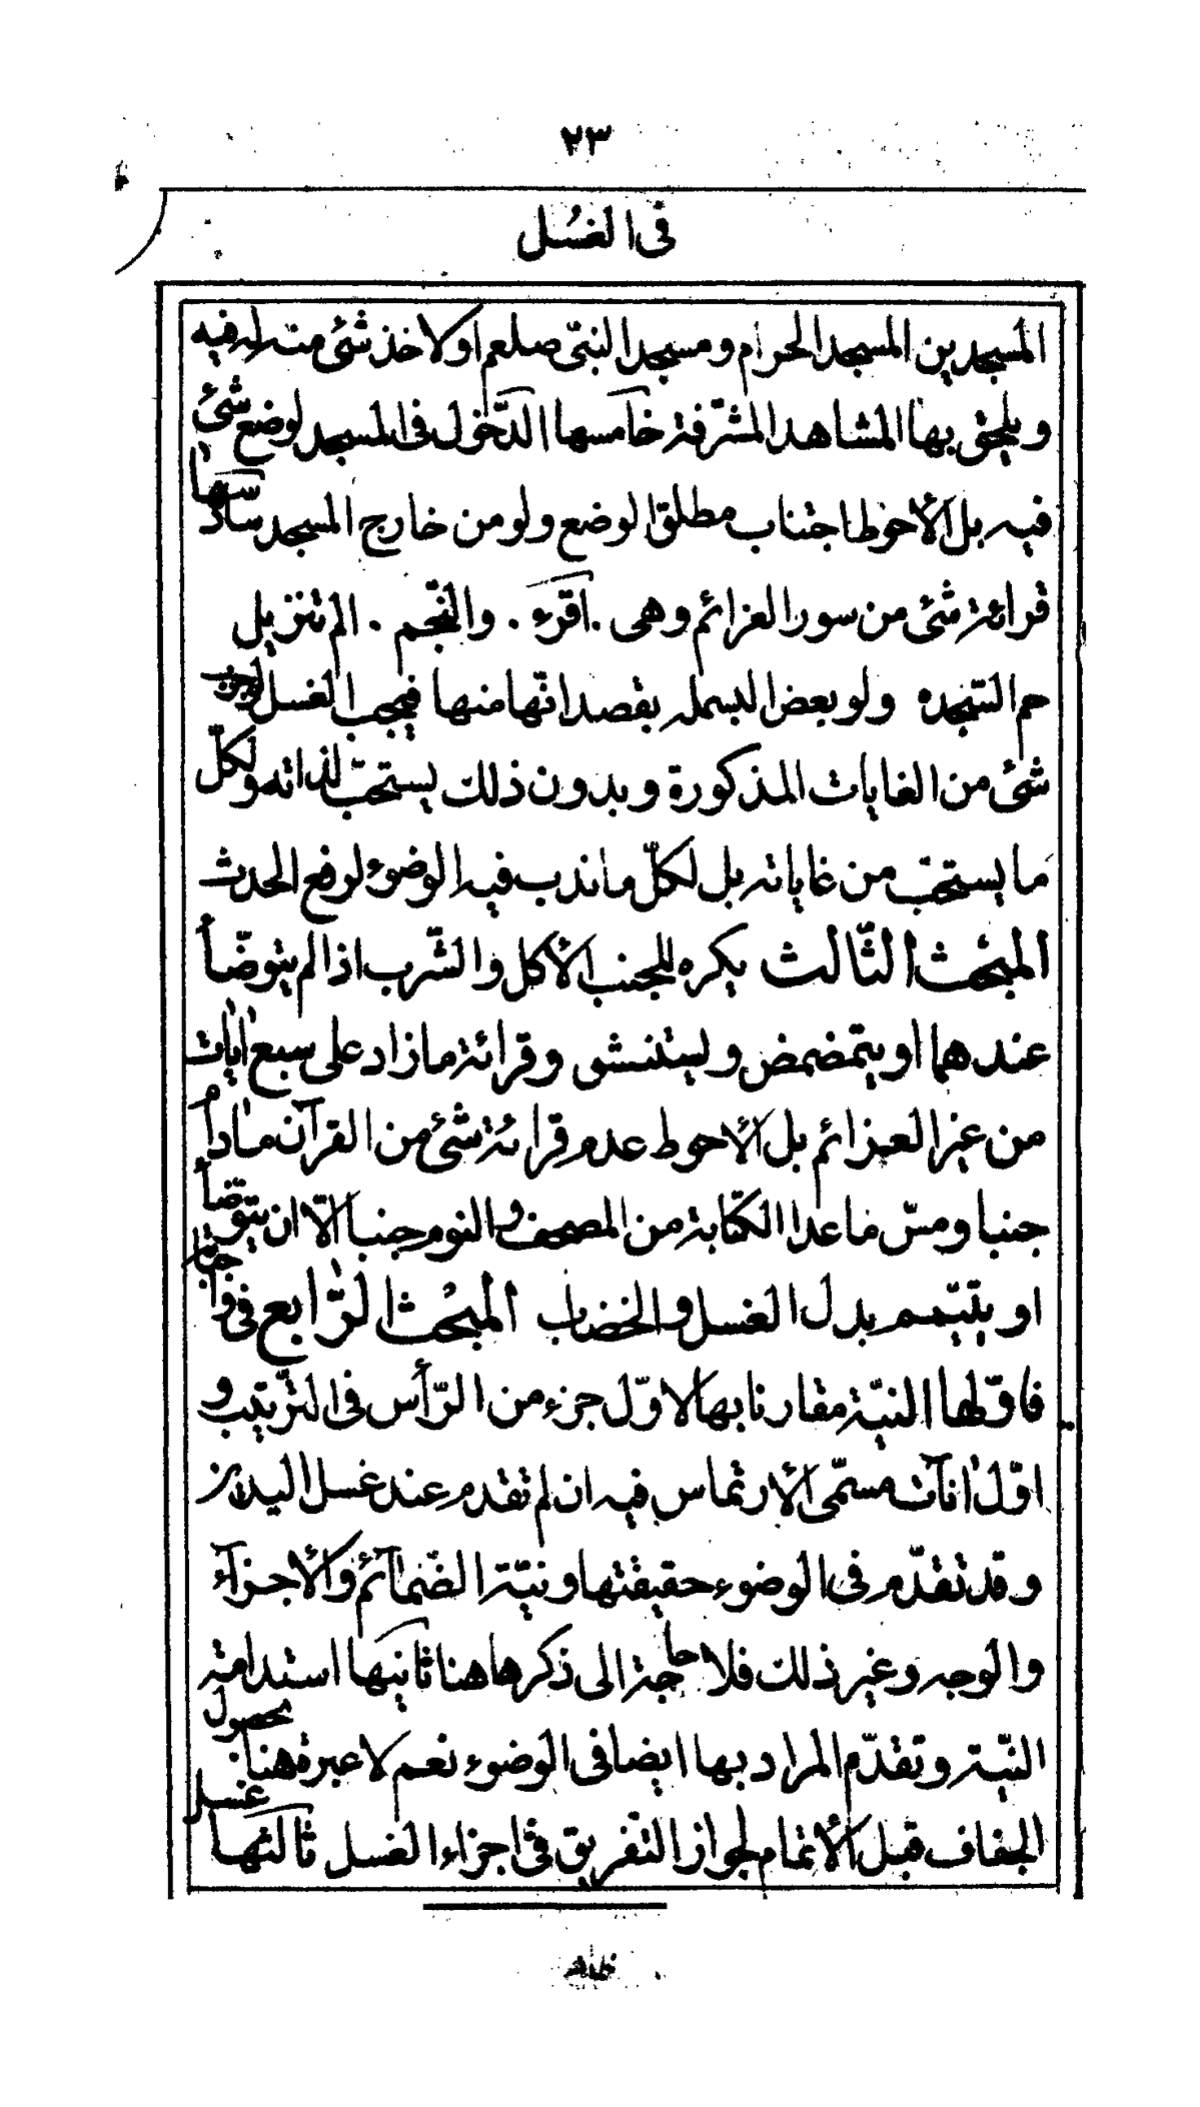 ٢٣
فى الغسُل
المسجدين المسجد الحرام ومسجد النبىّ صلعم او لاخذ شئ منه له فيه
ويلحق بها المشاهد المشرّفة خامسها الدّخول فى المسجد لوضع شئ
فيه بل الأحوط اجتناب مطلق الوضع ولو من خارج المسجد سادسها
قرائة شئ من سور العزائم وهى . اقرء . والنّجم . الم تنزيل
حم السّجده ولو بعض البسمله بقصد انّها منها فيجب الغسل لوجوب
شئ من الغايات المذكورة وبدون ذلك يستحبّ لذاته ولكلّ
ما يستحبّ من غاياته بل لكلّ ما ندب فيه الوضوء لرفع الحدث
المبحث الثّالث يكره للجنب الأكل والشّرب اذا لم يتوضّأ
عندهما او يتمضمض ويستنشق وقرائة ما زاد على سبع اٰيات
من غير العزائم بل الأحوط عدم قرائة شئ من القرآن مادام
جنبا ومسّ ما عدا الكتابة من المصحف والنوم جنبا الّا ان يتوضّأ
او يتيمّم بدل الغسل والخضاب المبحث الرّابع فى واجباتها
فاوّلها النيّة مقارنا بها لاوّل جزء من الرّأس فى الترّتيب و
اوّل اٰنات مسمّى الأرتماس فيه ان لم تقدم عند غسل اليدين
وقد تقدّم فى الوضوء حقيقتها ونيّة الضّمآئم والأجزآء
والوجه وغير ذلك فلا حاجة الى ذكرها هنا ثانيها استدامة
النيّة وتقدّم المراد بها ايضا فى الوضوء نعم لا عبرة هنا بحصول
الجفاف قبل الأتمام لجواز التفريق فى اجزاء الغسل ثالثها غسل